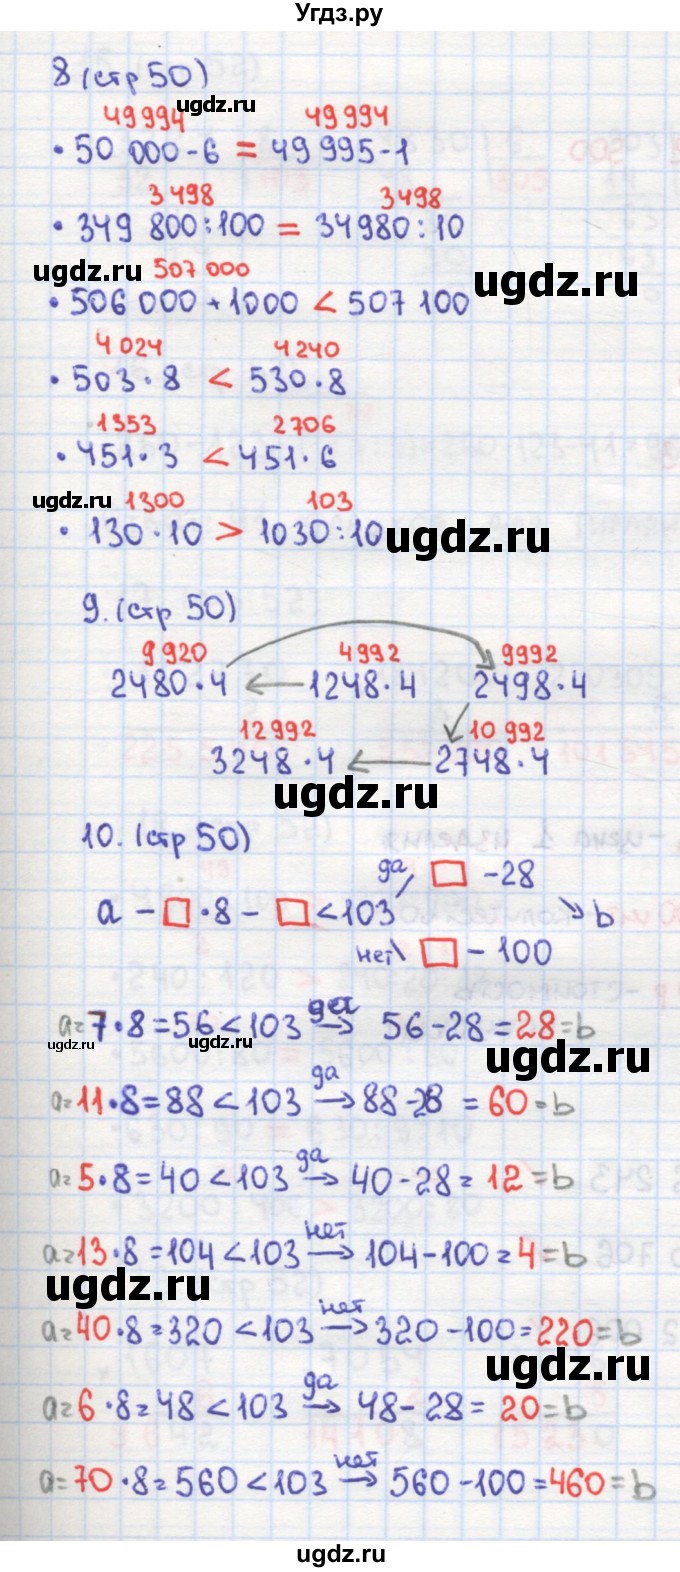 Угдз.ру
8 (стр 50)
ugdz.ru
49 994 49 994
• 50 000 - 6 = 49 995 - 1
3 498 3498
• 349 800 : 100 = 34980 : 10
ugdz.ru 507 000 ugdz.ru
• 506 000 + 1000 < 507 100
4 024 4 240
• 503 · 8 < 530 · 8
1353 2706
• 451 · 3 < 451 · 6
ugdz.ru 1300 103
• 130 · 10 > 1030 : 10
ugdz.ru
9. (стр 50)
9 920 4 992 9992
2480 · 4 ← 1248 · 4 2498 · 4
12 992 10 992
3248 · 4 ← 2748 · 4
ugdz.ru
10. (стр 50)
да □ - 28
a - □ · 8 - □ < 103 ↘ b
нет \ □ - 100
a = 7 · 8 = 56 < 103 да → 56 - 28 = 28 = b
ugdz.ru ugdz.ru ugdz.ru
a = 11 · 8 = 88 < 103 да → 88 - 28 = 60 = b
a = 5 · 8 = 40 < 103 да → 40 - 28 = 12 = b
a = 13 · 8 = 104 < 103 нет → 104 - 100 = 4 = b
ugdz.ru
a = 40 · 8 = 320 < 103 нет → 320 - 100 = 220 = b
ugdz.ru
a = 6 · 8 = 48 < 103 да → 48 - 28 = 20 = b
a = 70 · 8 = 560 < 103 нет → 560 - 100 = 460 = b
ugdz.ru